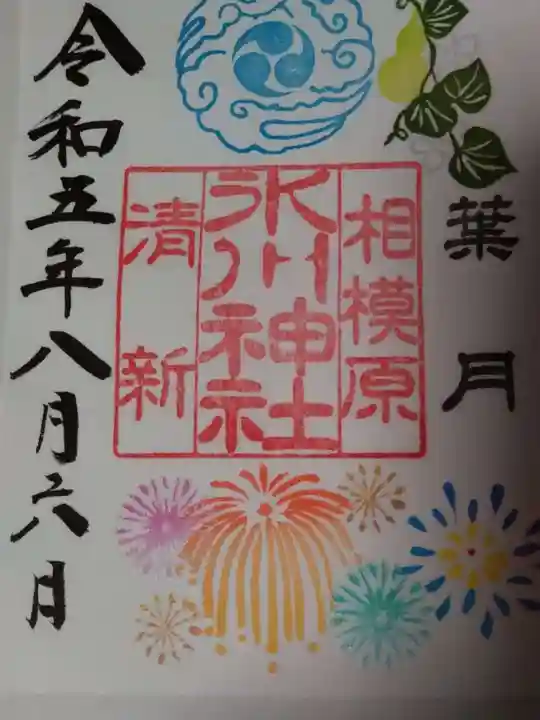 葉月
相模原
氷川神社
清新
令和五年八月六日